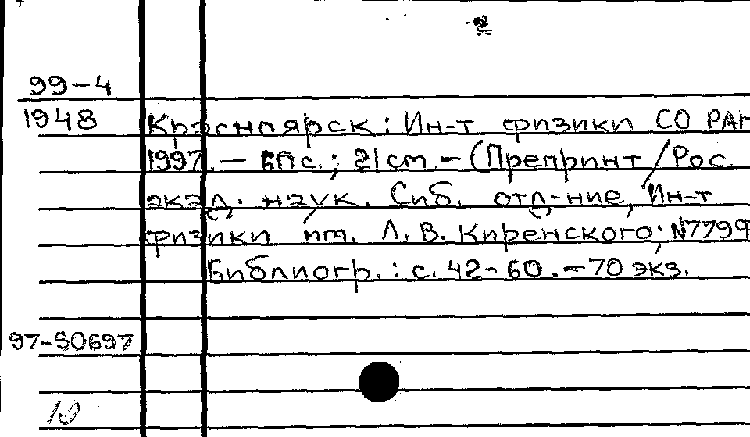 2
99-4
1948
Красноярск: Ин-т физики СО РАН
1997. — с.; 21 см. - (Препринт / Рос.
акад. наук. Сиб. отд-ние, Ин-т
физики им. Л. В. Киренского; N 779Ф
Библиогр.: с. 42-60. - 70 экз.
97-50697
10